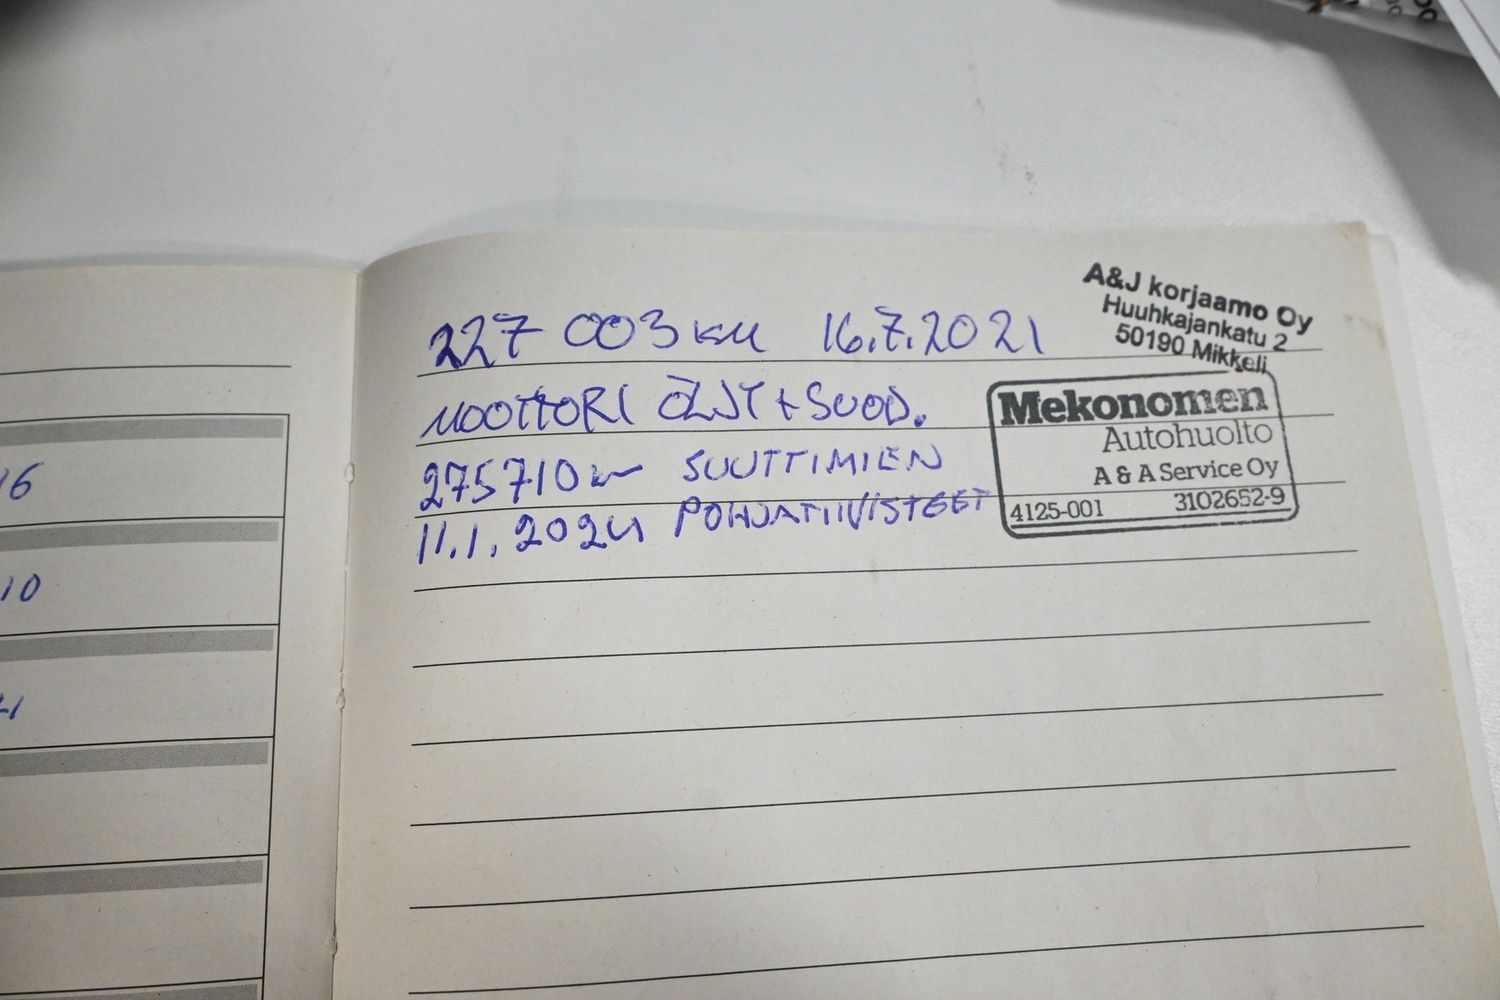 16
10
227 003 KM 16.7.2021
MOOTTORI ÖLJY + SUOD.
275710 km SUUTTIMIEN
11.1.2024 POHJATIIVISTEET
A&J korjaamo Oy
Huuhkajankatu 2
50190 Mikkeli
Mekonomen
Autohuolto
A & A Service Oy
4125-001 3102652-9